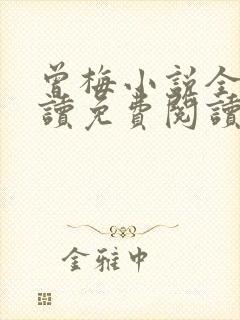 曾梅小说全
讀免費閱讀
金雅中